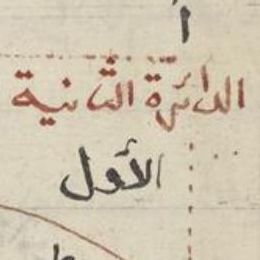 أ
الدائرة الثانية
الأول